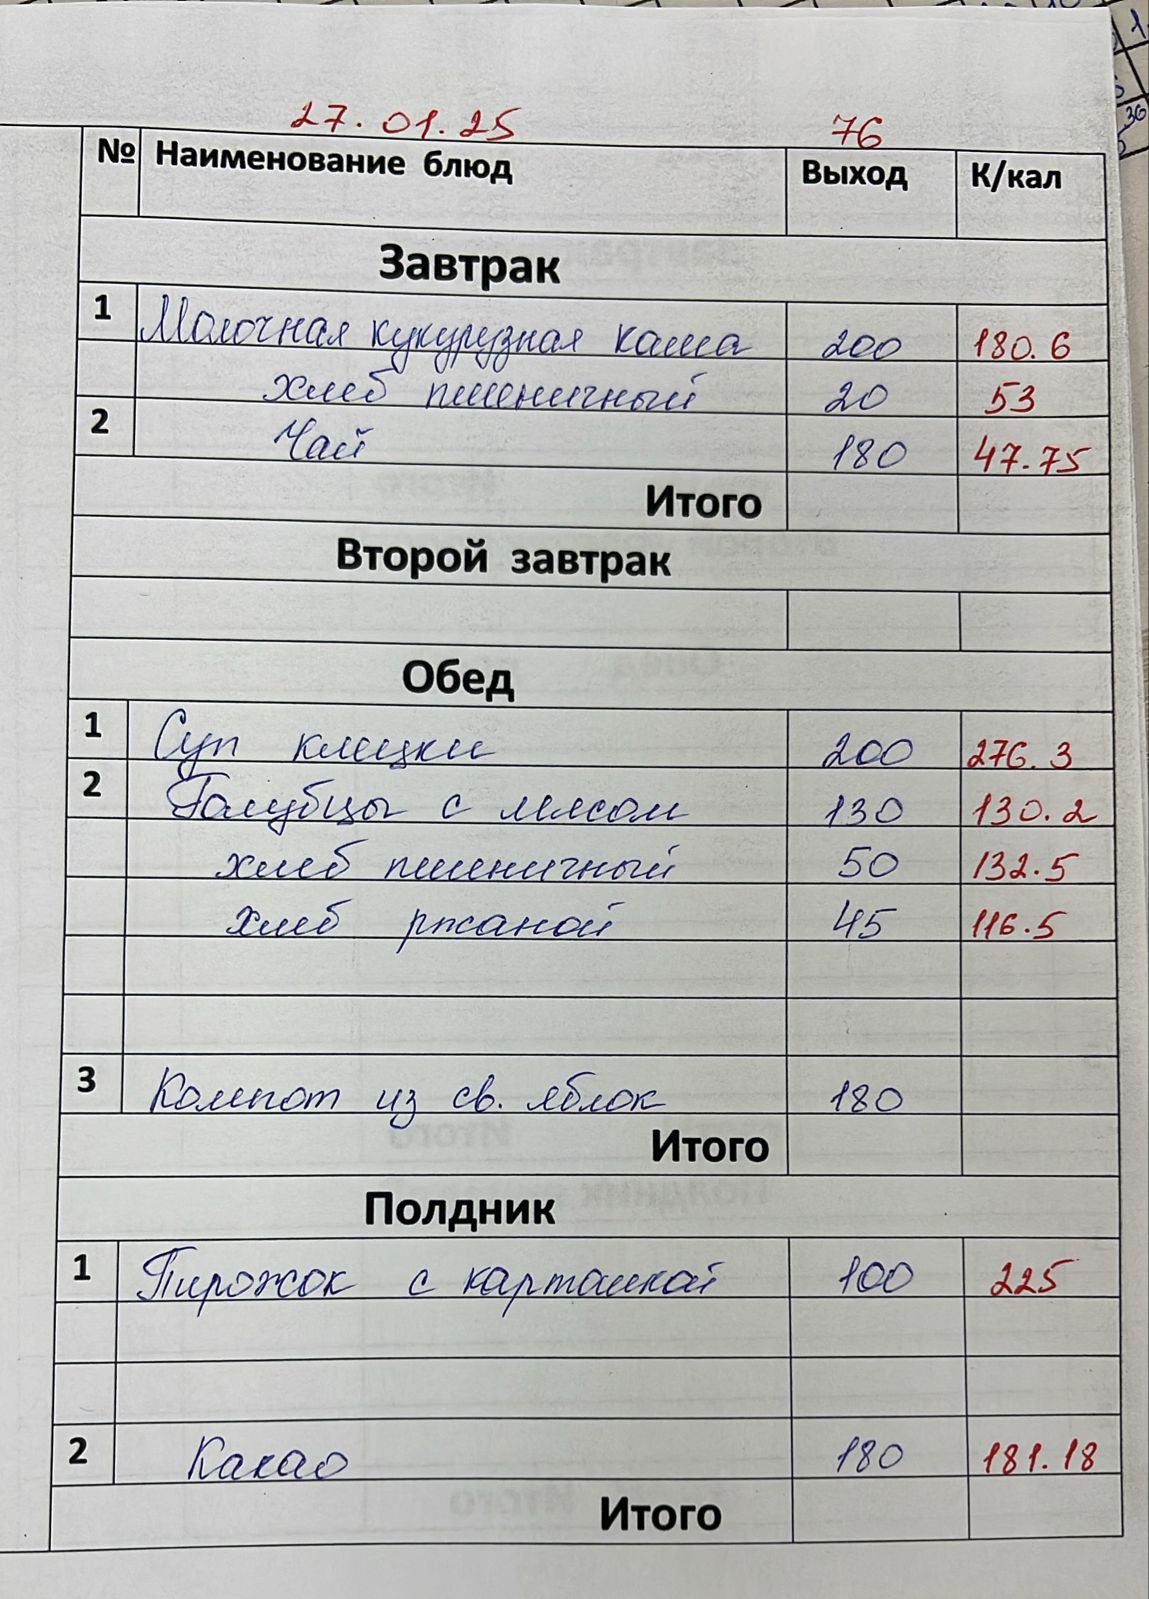 27.01.25 76
№ Наименование блюд Выход К/кал
Завтрак
1 Молочная кукурузная каша 200 180.6
хлеб пшеничный 20 53
2 Чай 180 47.75
Итого
Второй завтрак
Обед
1 Суп клецки 200 276.3
2 Голубцы с мясом 130 130.2
хлеб пшеничный 50 132.5
хлеб ржаной 45 116.5
3 Компот из св. яблок 180
Итого
Полдник
1 Пирожок с картошкой 100 225
2 Какао 180 181.18
Итого